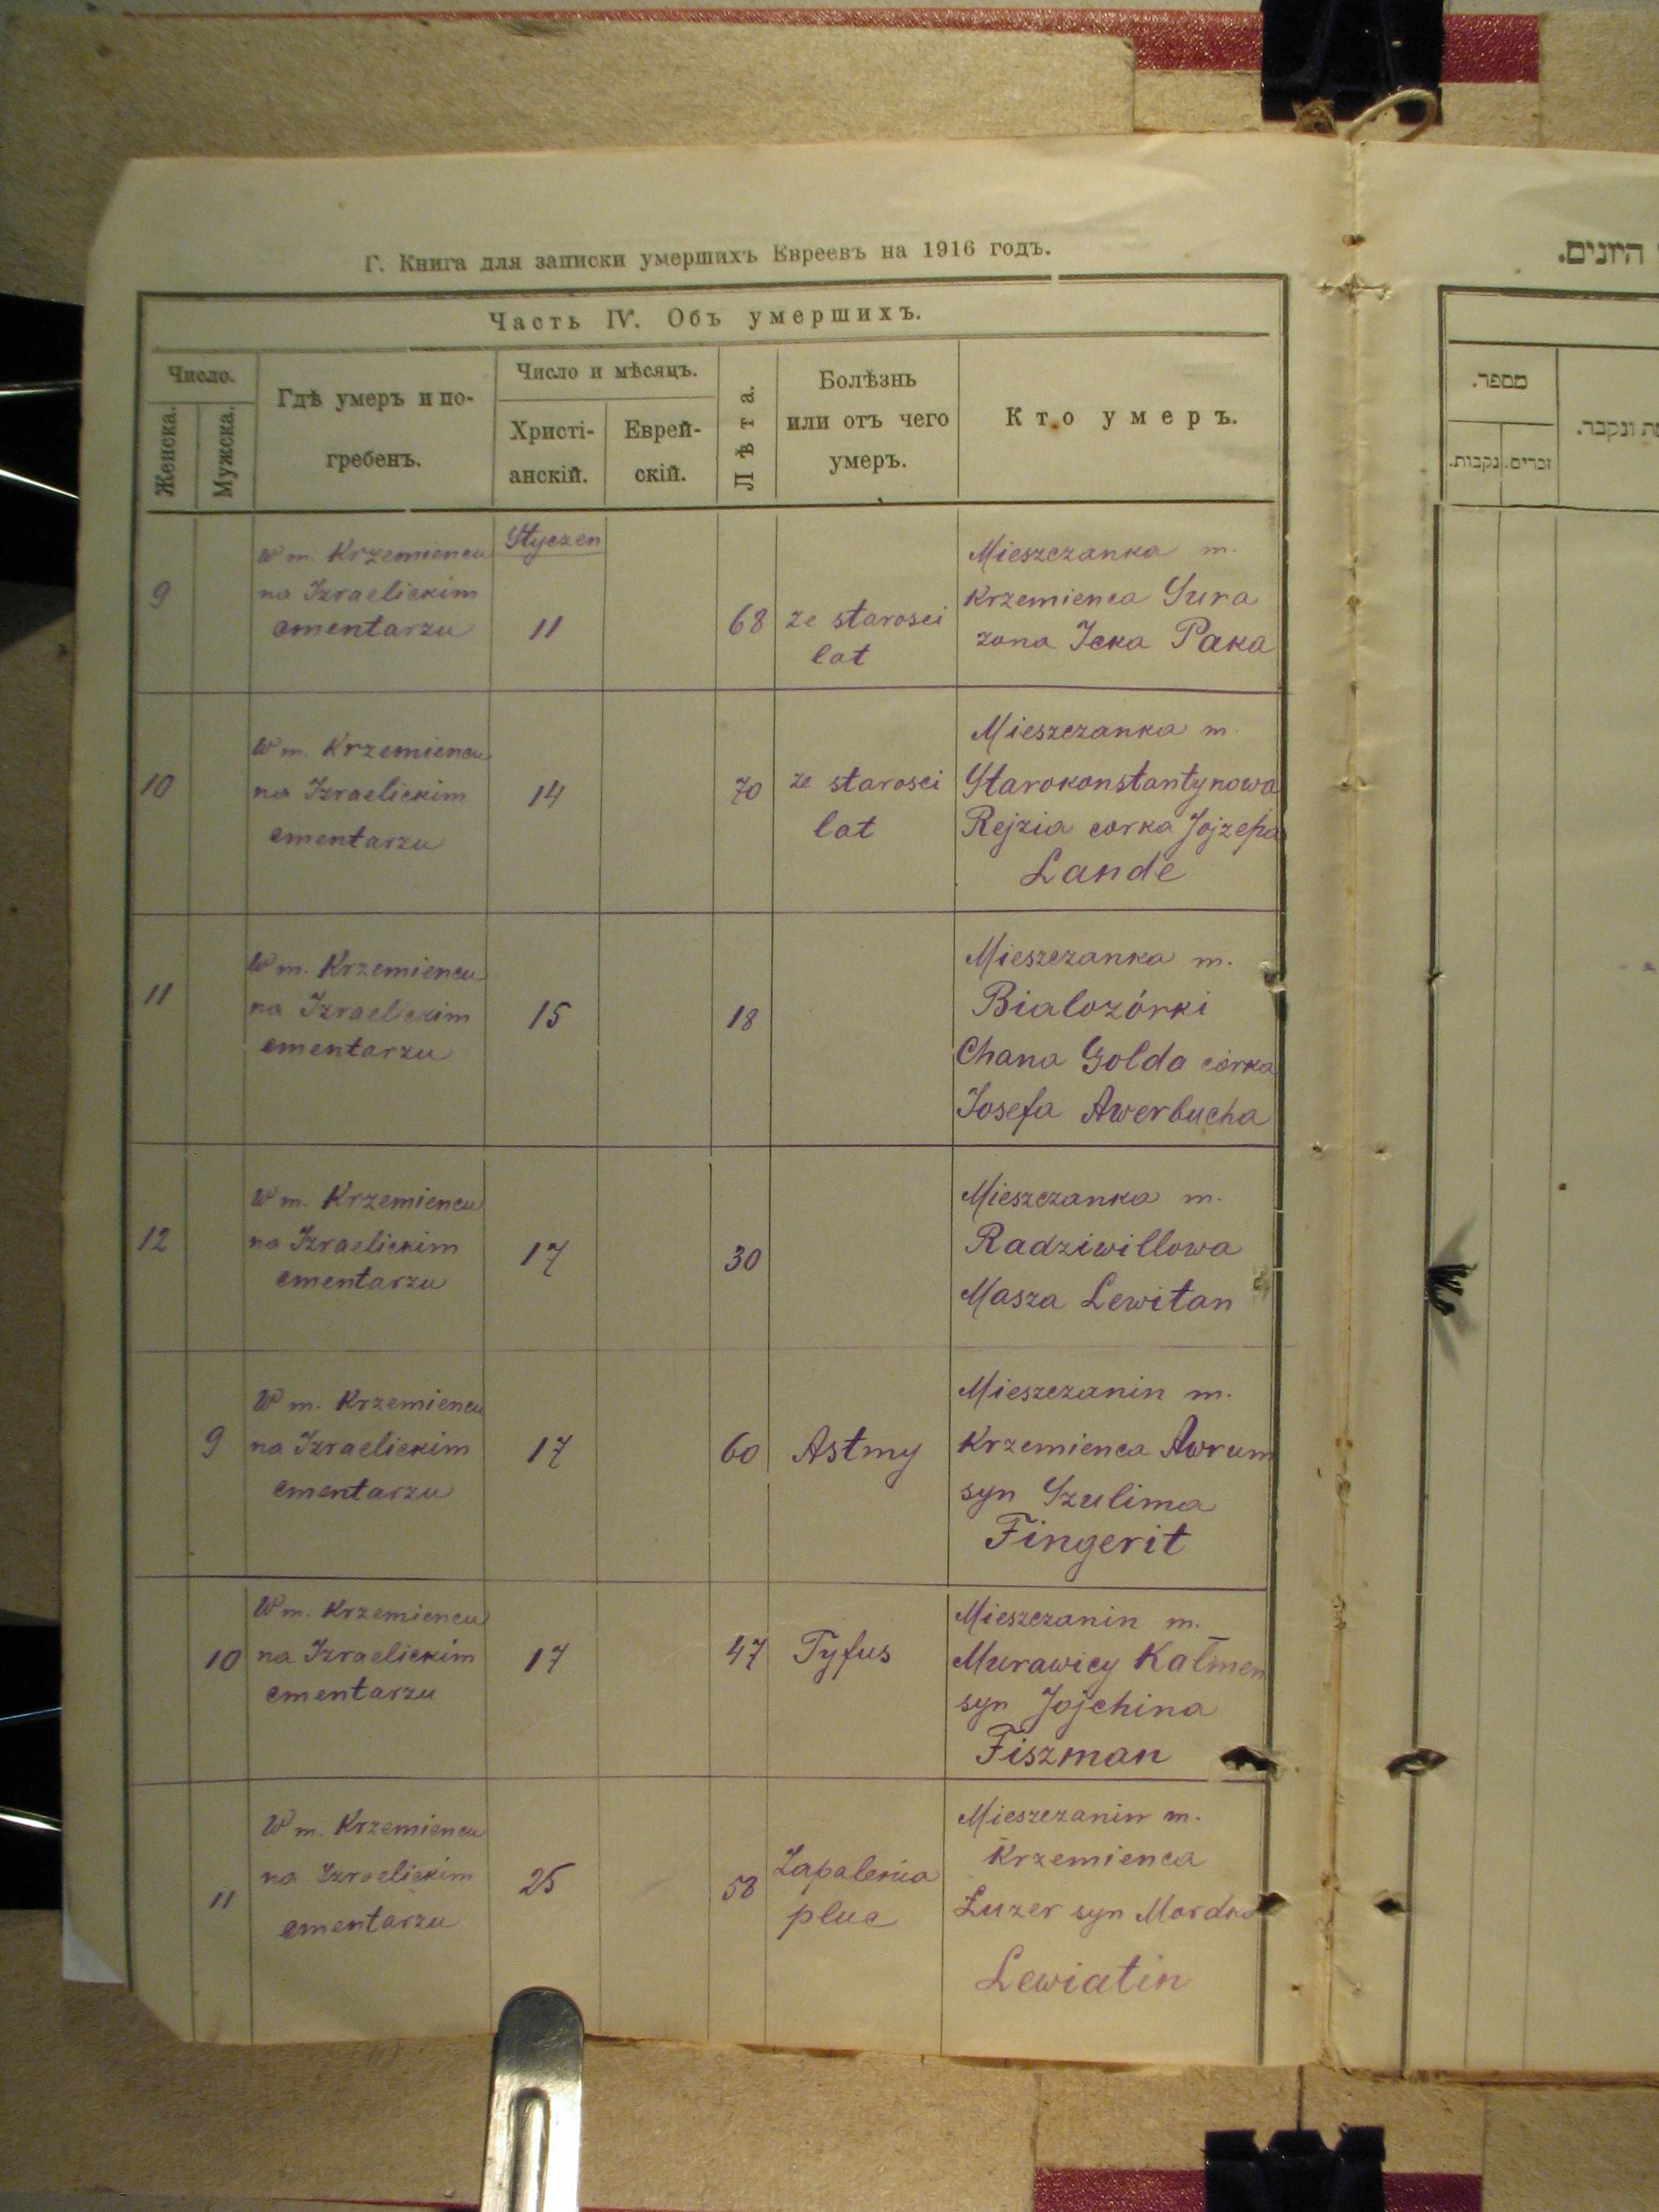 Г. Книга для записки умершихъ Евреевъ на 1916 годъ.
Часть IV. Объ умершихъ.
Число.
Женска.
Мужска.
Гдѣ умеръ и по-
гребенъ.
Число и мѣсяцъ.
Христі-
анскій.
Еврей-
скій.
Лѣта.
Болѣзнь
или отъ чего
умеръ.
Кто умеръ.
9
W m. Krzemiencu
na Izraelickim
cmentarzu
Styczen
11
68
ze starosci
lat
Mieszczanka m.
Krzemienca Sura
zona Icka Paka
10
W m. Krzemiencu
na Izraelickim
cmentarzu
14
70
ze starosci
lat
Mieszczanka m.
Starokonstantynowa
Rejzia corka Jojzepa
Lande
11
W m. Krzemiencu
na Izraelickim
cmentarzu
15
18
Mieszczanka m.
Bialozórki
Chana Golda córka
Josefa Awerbucha
12
W m. Krzemiencu
na Izraelickim
cmentarzu
17
30
Mieszczanka m.
Radziwillowa
Masza Lewitan
9
W m. Krzemiencu
na Izraelickim
cmentarzu
17
60
Astmy
Mieszczanin m.
Krzemienca Awrum
syn Szulima
Fingerit
10
W m. Krzemiencu
na Izraelickim
cmentarzu
17
47
Tyfus
Mieszczanin m.
Murawicy Kalmen
syn Jojchina
Fiszman
11
W m. Krzemiencu
na Izraelickim
cmentarzu
25
58
Zapalenia
pluc
Mieszczanin m.
Krzemienca
Luzer syn Mordka
Lewiatin
היונים.
מספר.
זכרים.
נקבות.
ונקבר.